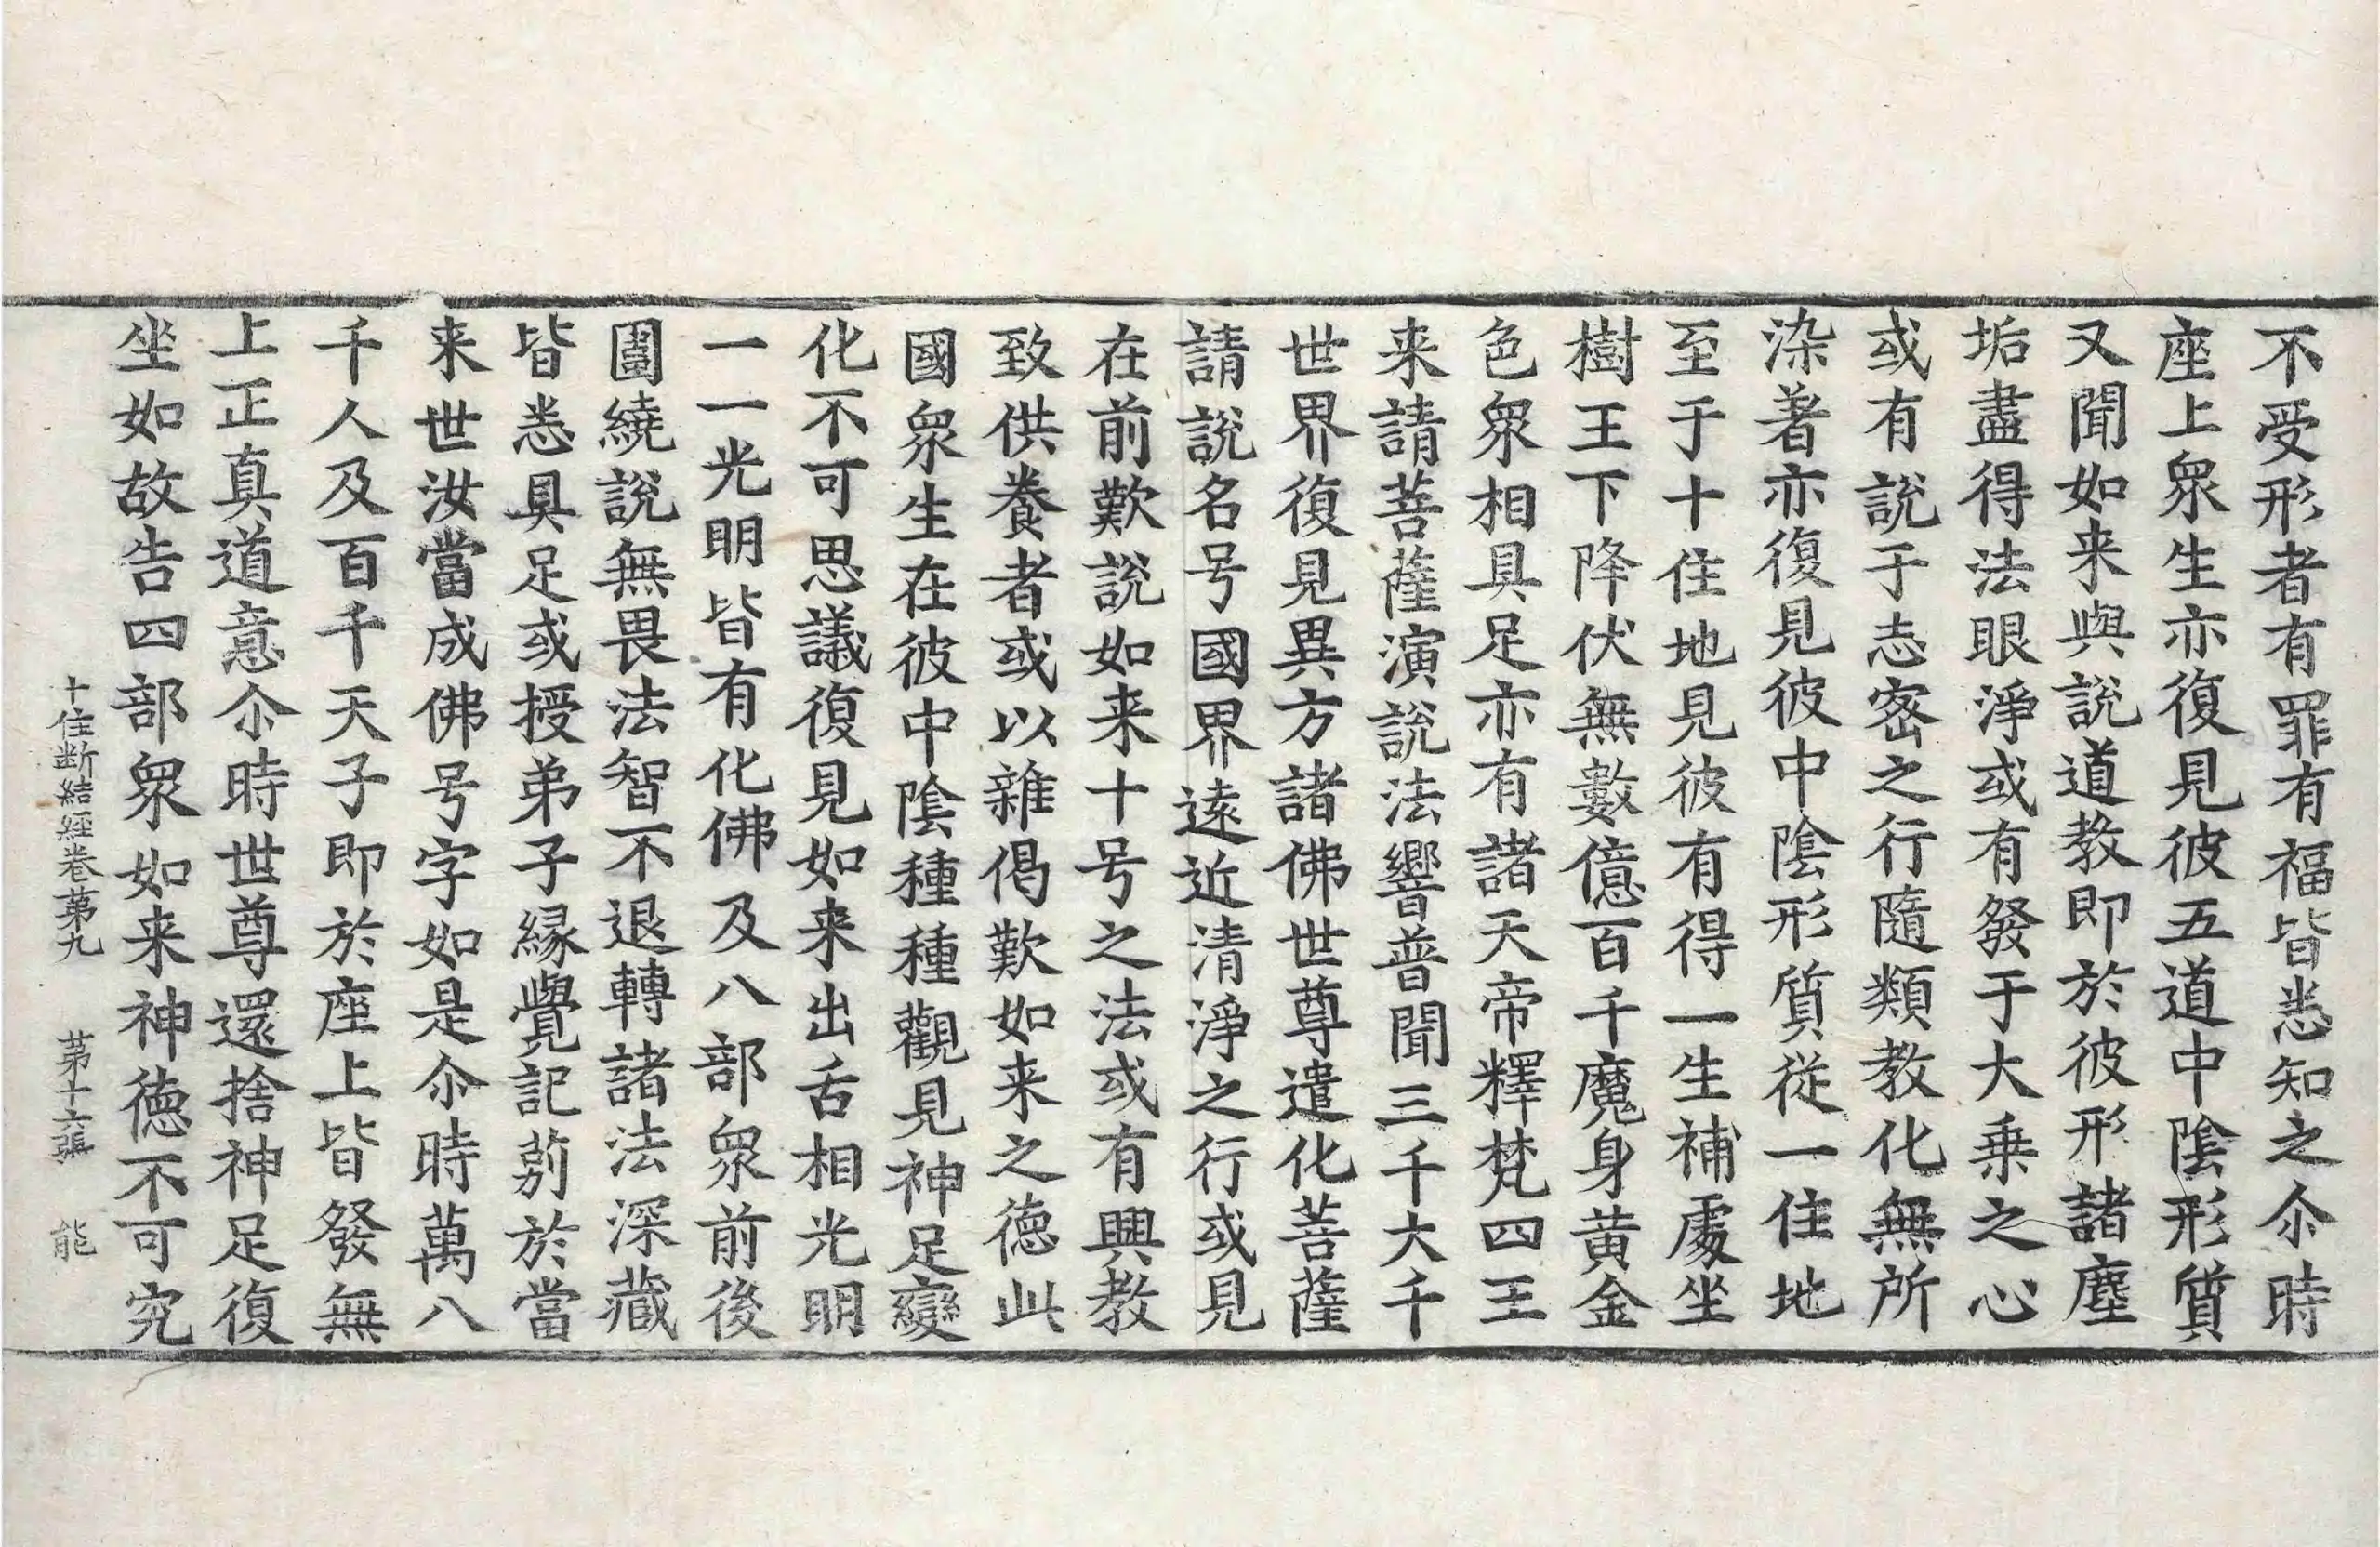 不受形者有罪有福皆悉知之尒時
座上衆生亦復見彼五道中陰形質
又聞如来與說道教即於彼形諸塵
垢盡得法眼淨或有發于大乗之心
或有說于志密之行隨類教化無所
染著亦復見彼中陰形質從一住地
至于十住地見彼有得一生補處坐
樹王下降伏無數億百千魔身黄金
色衆相具足亦有諸天帝釋梵四王
来請菩薩演說法響普聞三千大千
世界復見異方諸佛世尊遣化菩薩
請說名号國界遠近清淨之行或見
在前歎說如来十号之法或有興教
致供養者或以雜偈歎如来之德此
國衆生在彼中陰種種觀見神足變
化不可思議復見如来出舌相光明
一一光明皆有化佛及八部衆前後
圍繞說無畏法智不退轉諸法深藏
皆悉具足或授弟子縁覺記莂於當
来世汝當成佛号字如是尒時萬八
千人及百千天子即於座上皆發無
上正真道意尒時世尊還捨神足復
坐如故告四部衆如来神德不可究
十住断結經卷苐九 苐十六張 能